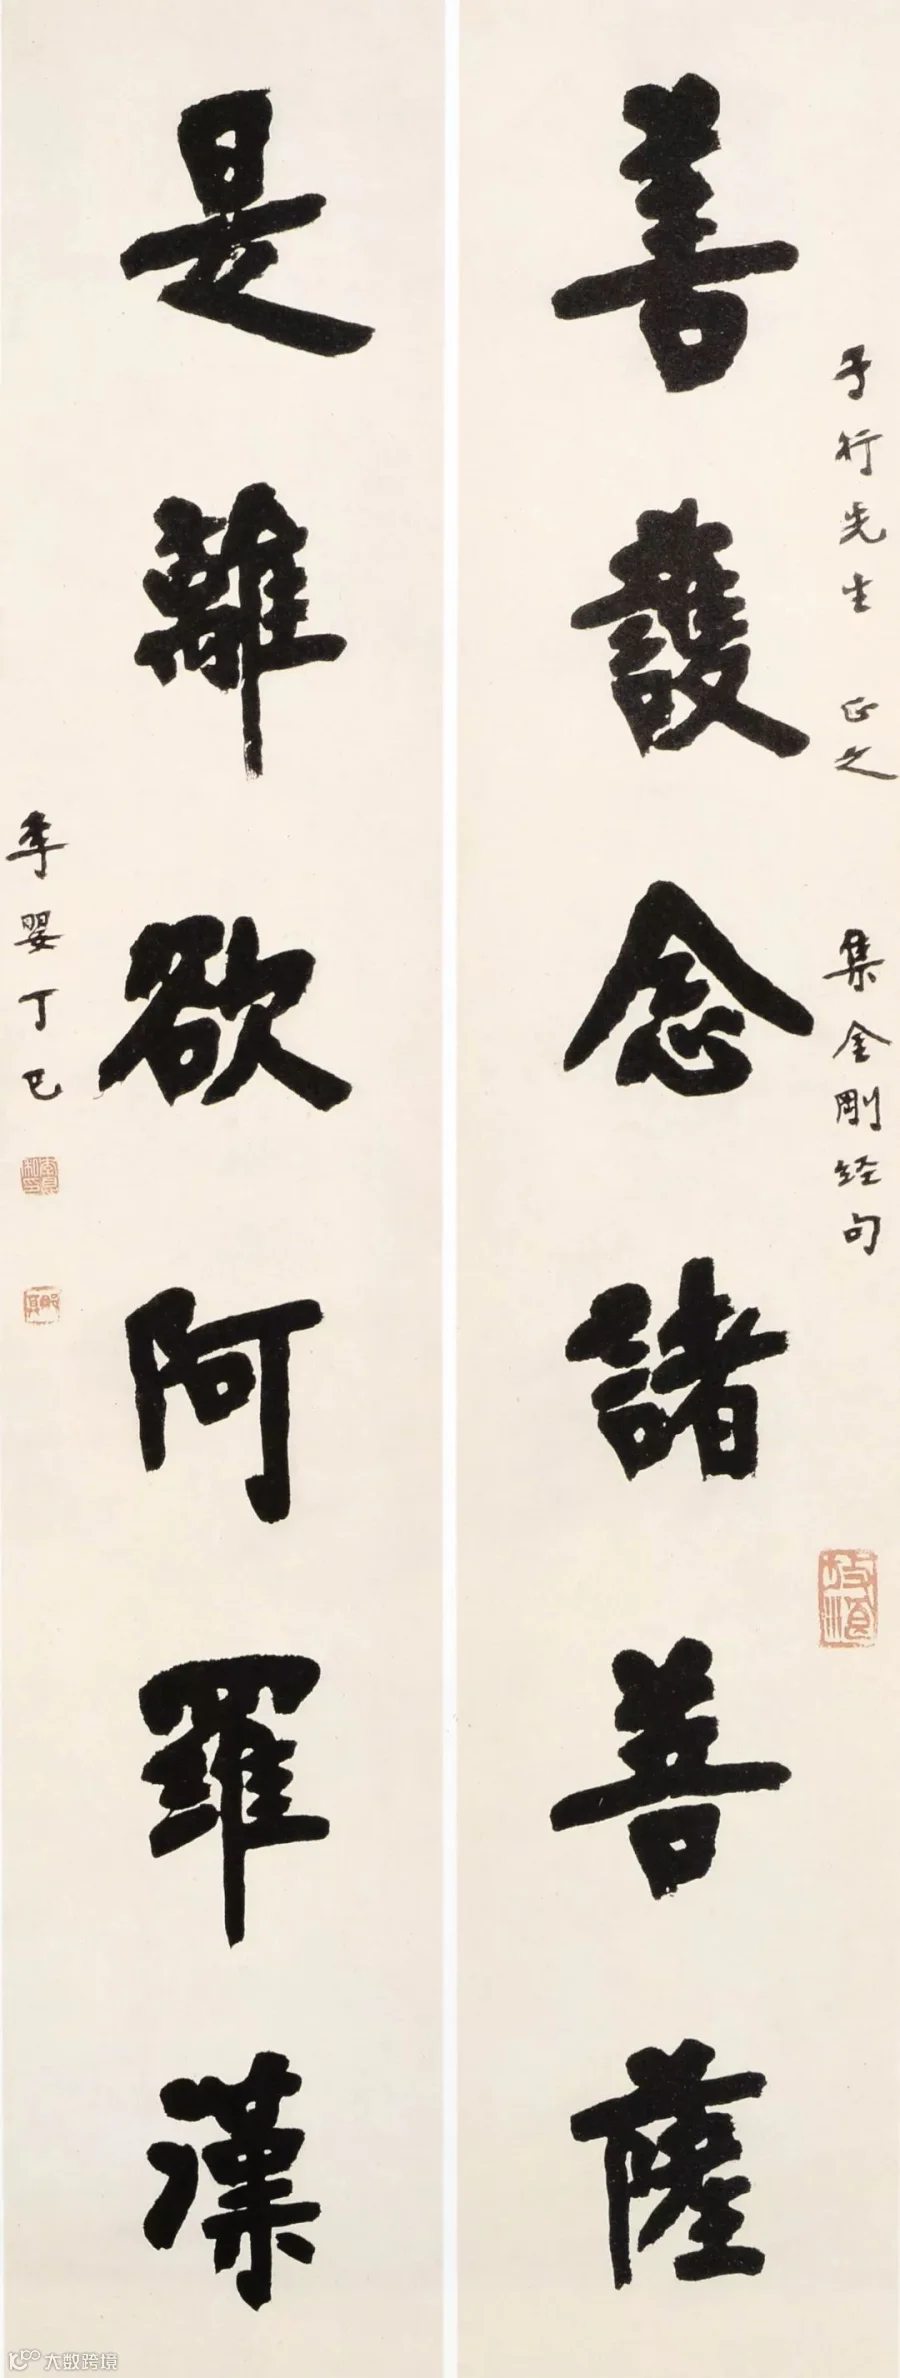 子行先生 正之 集金剛經句
善護念諸菩薩
是離欲阿羅漢
季嬰丁巳
大数跨境